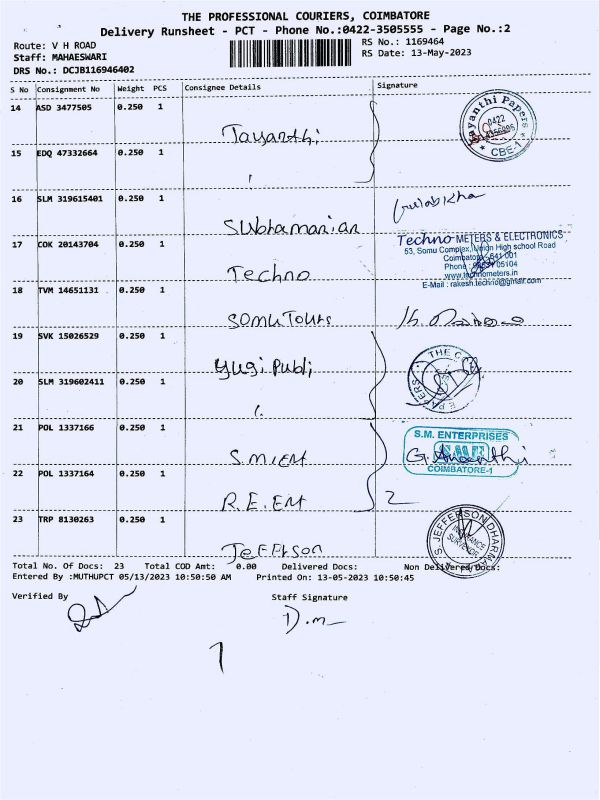 THE PROFESSIONAL COURIERS, COIMBATORE
Delivery Runsheet - PCT - Phone No.:0422-3505555 - Page No.:2
Route: V H ROAD
RS No.: 1169464
Staff: MAHAESWARI
RS Date: 13-May-2023
DRS No.: DCJB116946402
S No Consignment No Weight PCS Consignee Details Signature
14 ASD 3477505 0.250 1
Jayanthi
Jayanthi Papers
0422
CBE-1
15 EDQ 47332664 0.250 1
16 SLM 319615401 0.250 1
Subhamanian
17 COK 20143704 0.250 1
Techno
Techno METERS & ELECTRONICS
53, Somu Complex, Union High school Road
Coimbatore - 641 001
Phone : 05104
www.technometers.in
E-Mail : rakesh.techno@gmail.com
18 TVM 14651131 0.250 1
Somu Tours
19 SVK 15026529 0.250 1
Yugi Publi
20 SLM 319602411 0.250 1
21 POL 1337166 0.250 1
S.M.Ent
S.M. ENTERPRISES
S.M.E
COIMBATORE-1
G. Ananthi
22 POL 1337164 0.250 1
R.E.Ent
2
23 TRP 8130263 0.250 1
Jefferson
S. JEFFERSON DHARMA
INSURANCE
SURVEYOR
Total No. Of Docs: 23 Total COD Amt: 0.00 Delivered Docs: Non Delivered Docs:
Entered By :MUTHUPCT 05/13/2023 10:50:50 AM Printed On: 13-05-2023 10:50:45
Verified By Staff Signature
D.m
1